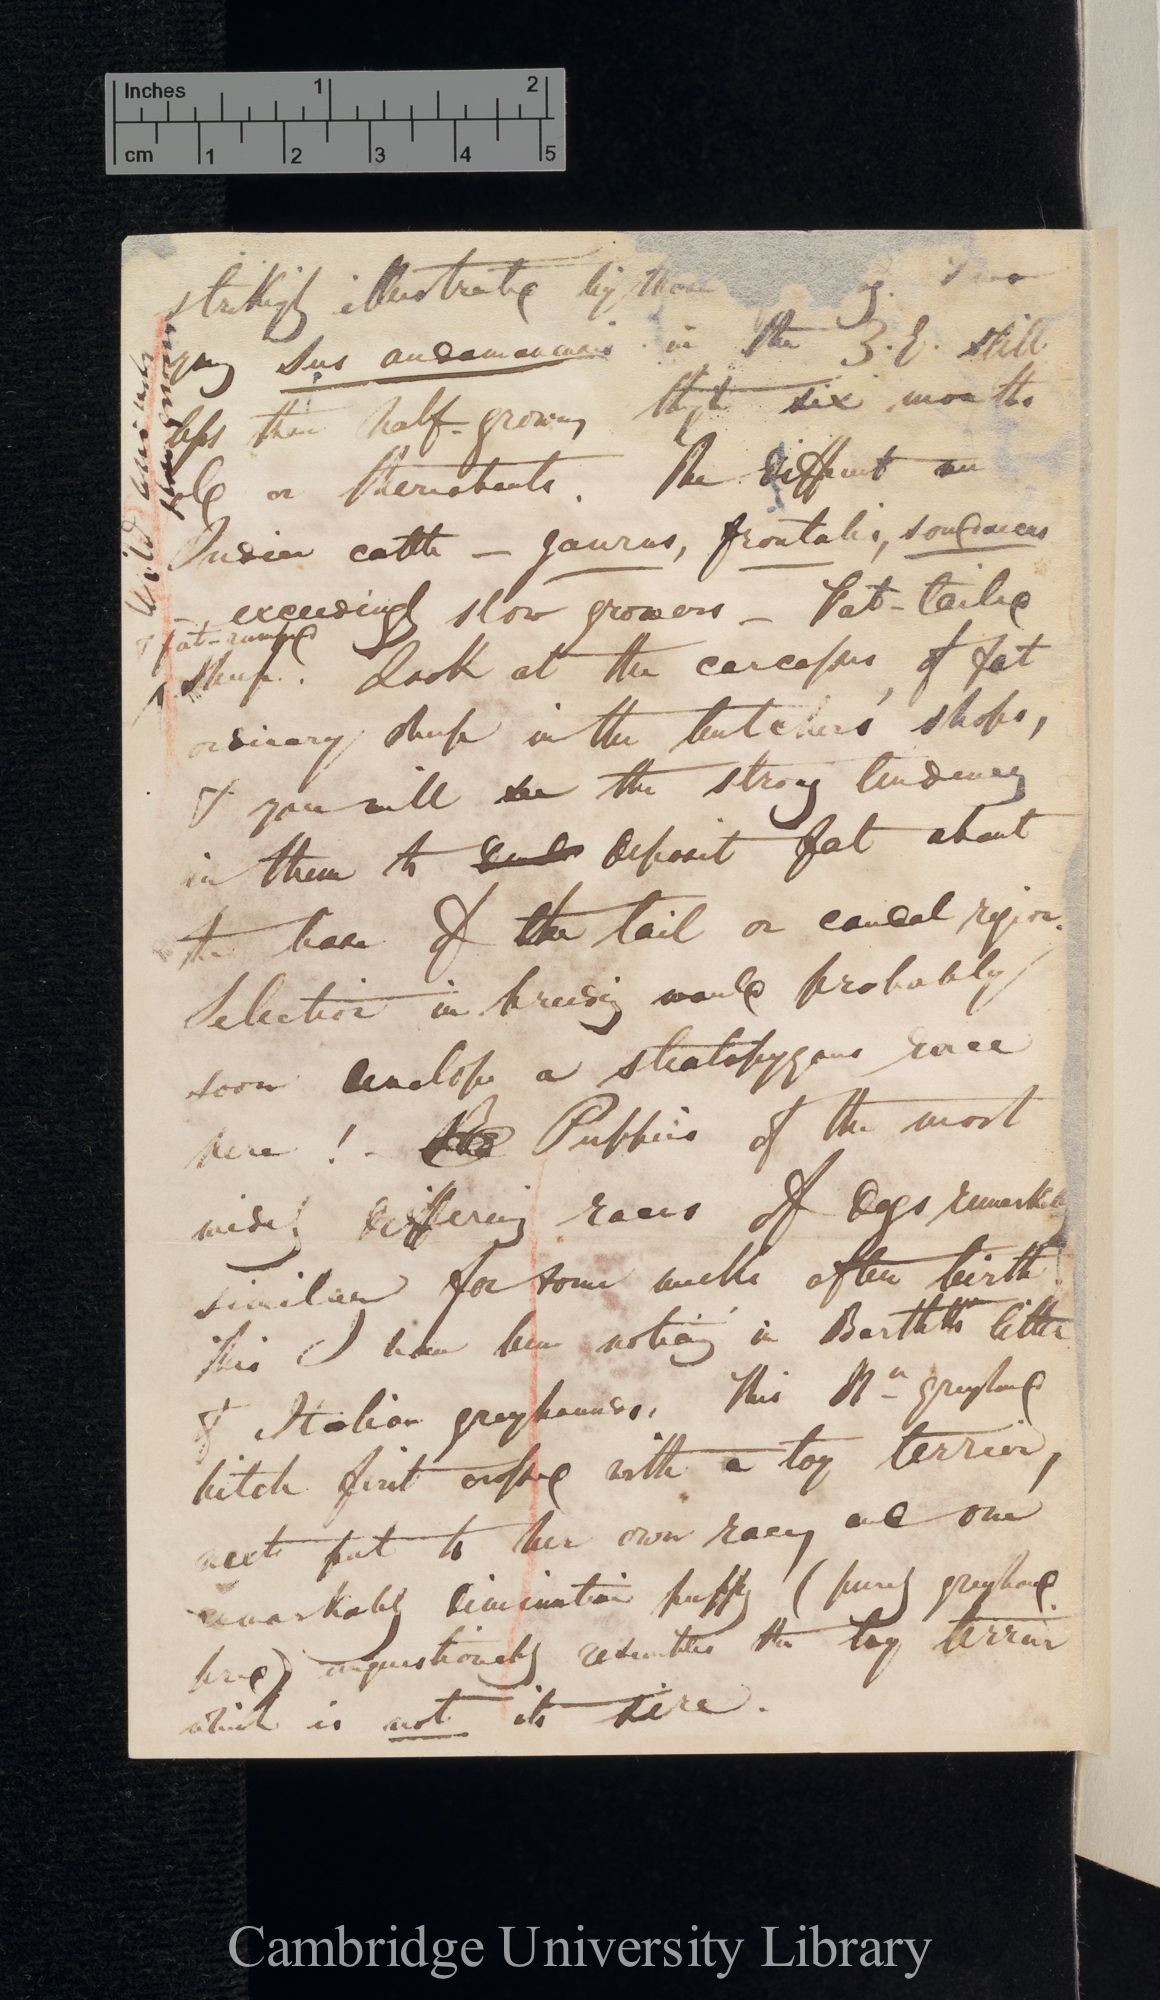 Inches 1 2
cm 1 2 3 4 5
strikingly illustrated by these
young Sus andamanensis in the Z.G. still
less than half-grown, though six months
old or thereabouts. The different
Indian cattle — gaurus, frontalis, sondaicus
exceedingly slow growers — Fat-tailed
& fat-rumped
sheep. Look at the carcasses of fat
ordinary sheep in the butchers' shops,
& you will see the strong tendency
in them to deposit fat about
the base of the tail or caudal region.
Selection in breeding would probably
soon develope a steatopygous race
here! — Puppies of the most
widely differing races of dogs remarkably
similar for some weeks after birth.
This I have been noticing in Bartlett's litter
of Italian greyhounds. This Itn greyhound
bitch first crossed with a toy terrier,
next put to her own race, and one
remarkably diminutive puppy (purely greyhound
bred) unquestionably resembles the toy terrier
which is not its sire.
Wild animals
Cambridge University Library